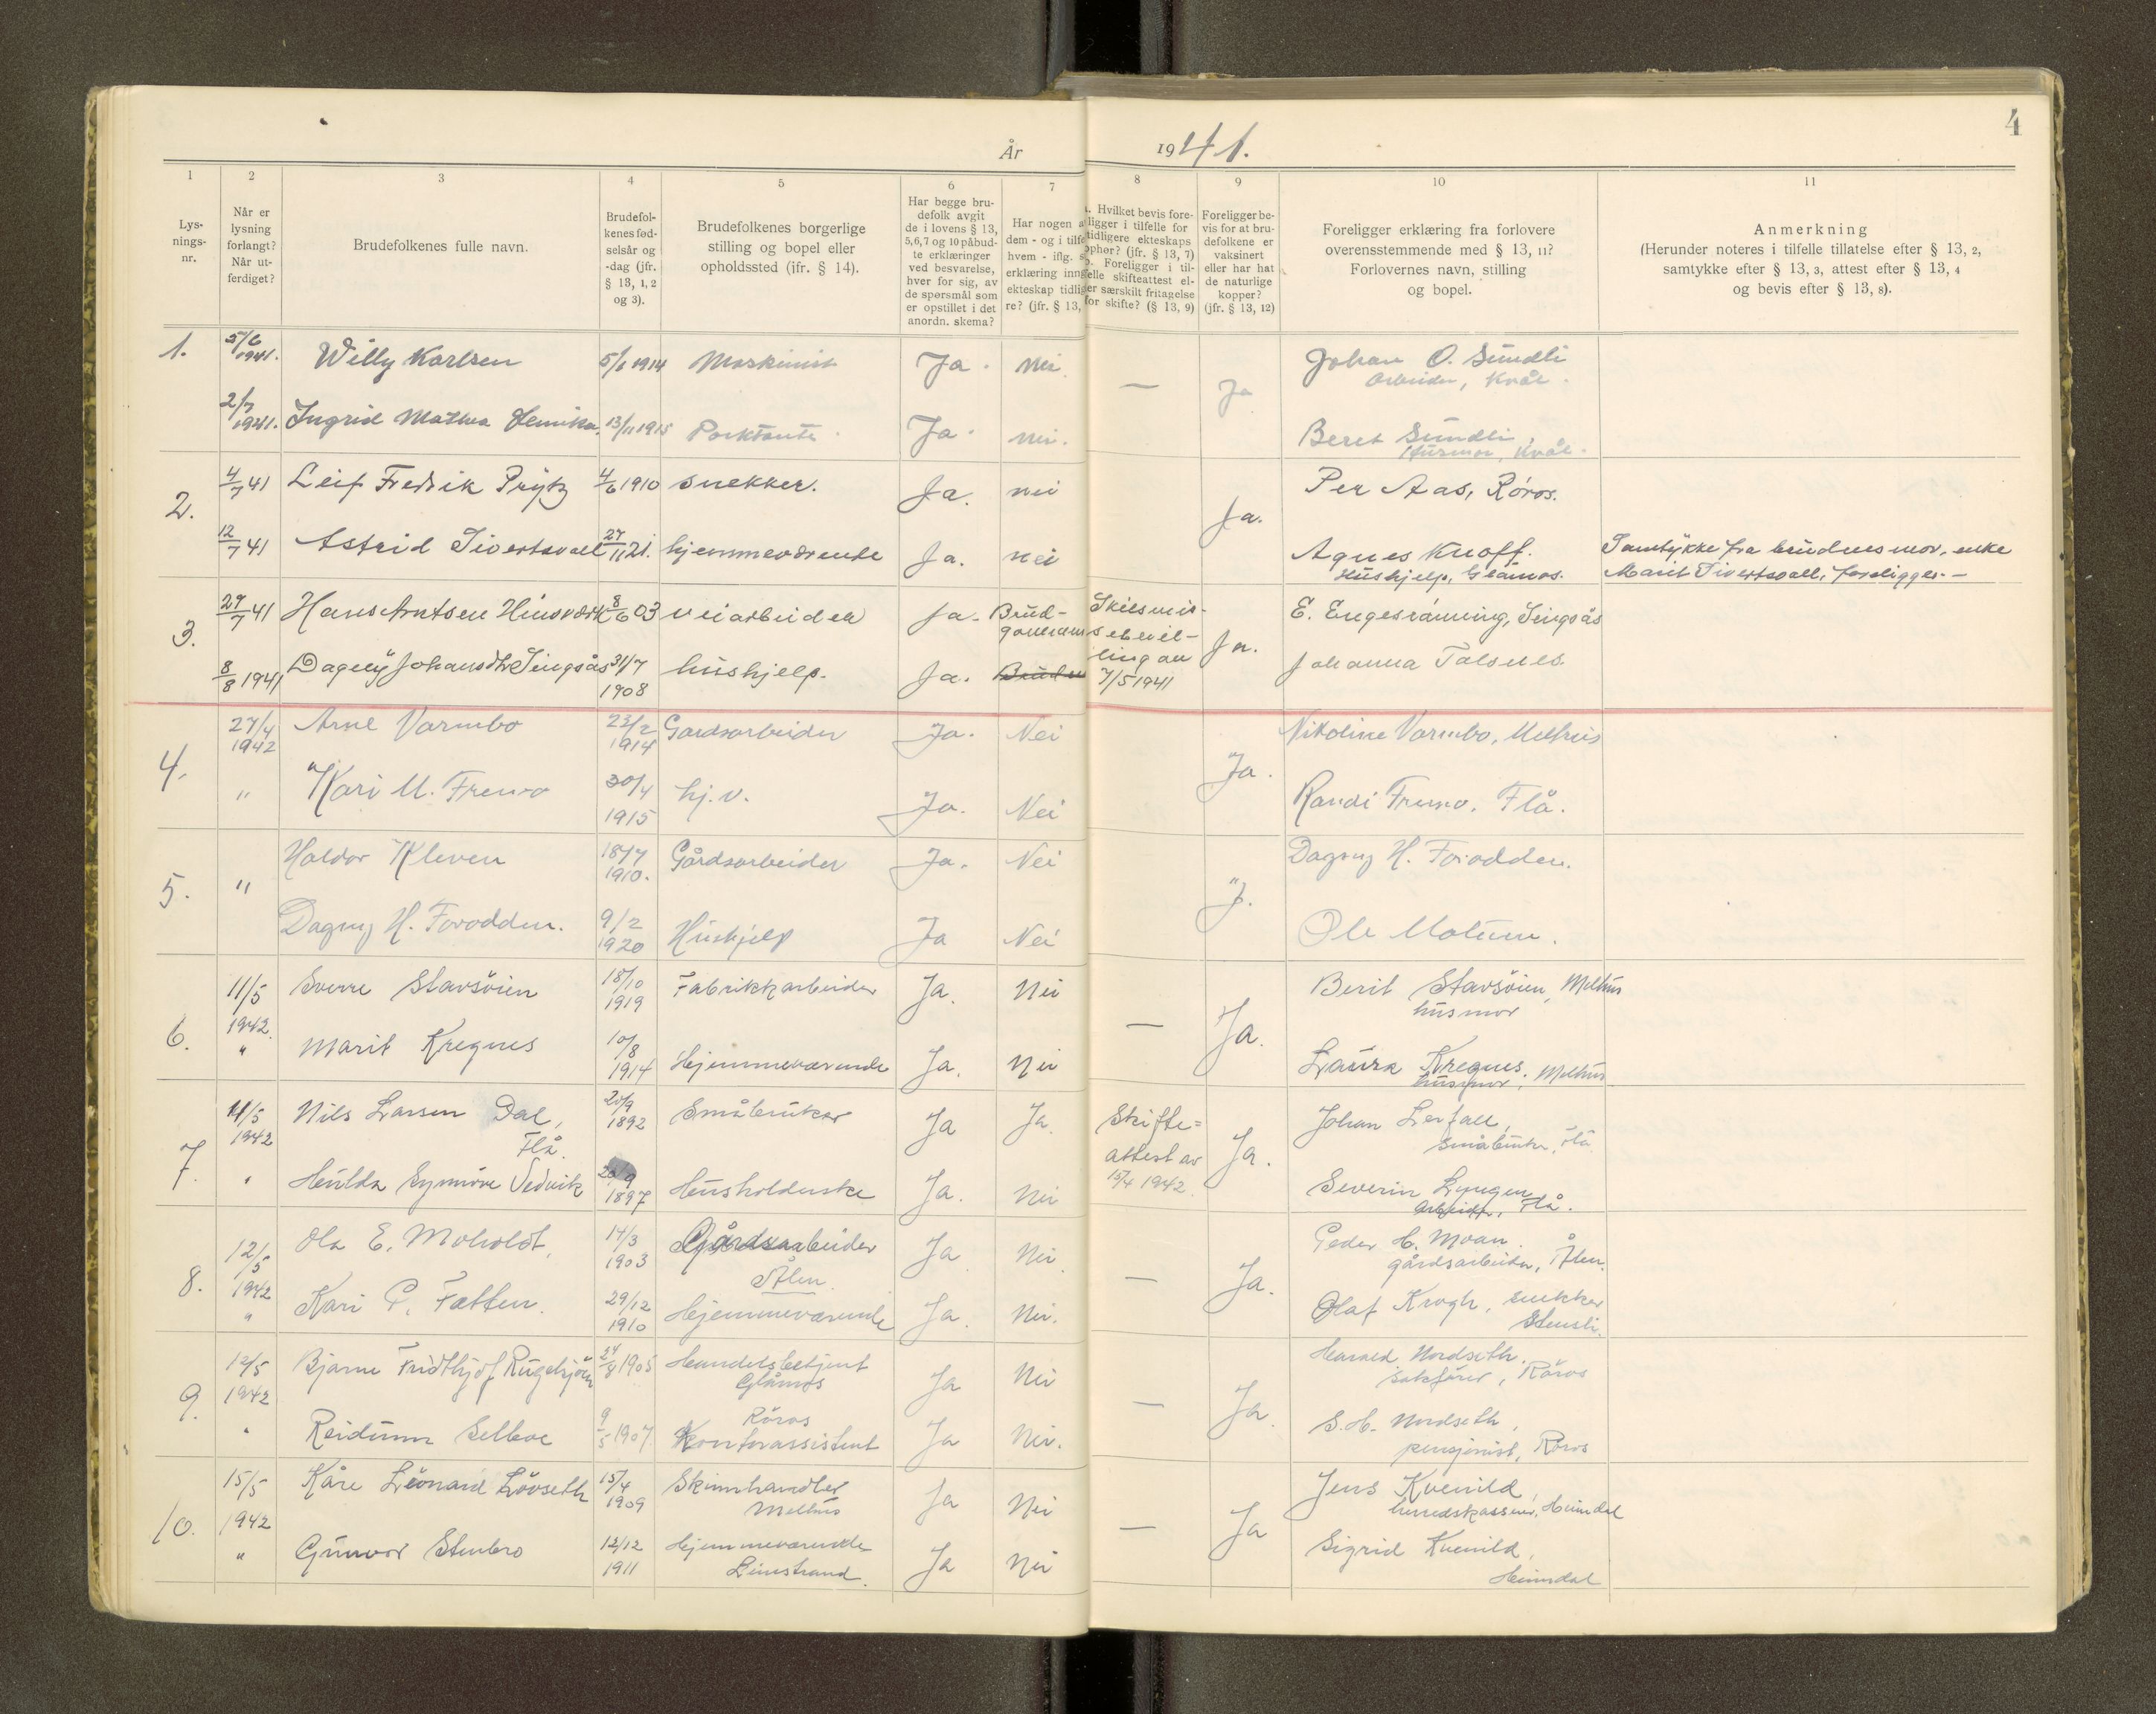 4
År 1941.
1 2 3 4 5 6 7 8 9 10 11
Lys-
nings-
nr.
Når er
lysning
forlangt?
Når ut-
ferdiget?
Brudefolkenes fulle navn.
Brudefol-
kenes fød-
selsår og
-dag (jfr.
§ 13, 1, 2
og 3).
Brudefolkenes borgerlige
stilling og bopel eller
opholdssted (ifr. § 14).
Har begge bru-
defolk avgit
de i lovens § 13,
5,6,7 og 10 påbud-
te erklæringer
ved besvarelse,
hver for sig, av
de spørsmål som
er opstillet i det
anordn. skema?
Har nogen a
dem - og i tilfe
hvem - iflg. s
erklæring inng
ekteskap tidlig
re? (jfr. § 13,
a. Hvilket bevis fore-
ligger i tilfelle for
tidligere ekteskaps
ophør? (jfr. § 13, 7)
b. Foreligger i til-
felle skifteattest el-
er særskilt fritagelse
for skifte? (§ 13, 9)
Foreligger be-
vis for at bru-
defolkene er
vaksinert
eller har hat
de naturlige
kopper?
(jfr. § 13, 12)
Foreligger erklæring fra forlovere
overensstemmende med § 13, 11?
Forlovernes navn, stilling
og bopel.
Anmerkning
(Herunder noteres i tilfelle tillatelse efter § 13, 2,
samtykke efter § 13, 3, attest efter § 13, 4
og bevis efter § 13, 8).
1. 5/6 1941. Willy Karlsen 5/6 1914 Maskinist Ja. Nei. — Ja Johan O. Sundli
Arbeider, Kvål.
2/7 1941. Ingrid Mathea 13/11 1915 Ja. Nei. Beret Sundli,
Husmor, Kvål.
2. 4/7 41 Leif Fredrik Prytz 4/6 1910 snekker. Ja. nei Ja. Per Aas, Röros.
12/7 41 Astrid Sivertsvoll 27/11 21. hjemmeværende Ja. nei Agnes Knoff. Samtykke fra brudens mor, enke
Hushjelp, Glåmos. Marit Sivertsvoll, foreligger.—
3. 29/7 41 Hans Arntsen Hinsværk 8/6 03 veiarbeider Ja. Brud-
gommen Skilsmis-
sebevil-
ling av
7/5 1941 Ja. E. Engesrönning, Singsås
8/8 1941 Dagny Johansdtr Singsås 31/7
1908 hushjelp. Ja. Bruden Johanna Talsnes.
4. 27/4
1942 Arne Varmbo 23/2
1914 Gardsarbeider Ja. Nei Ja. Nikoline Varmbo, Melhus
" Kari M. Fremo 30/4
1915 hj.v. Ja. Nei Randi Fremo, Flå.
5. " Haldor Kleven 18/7
1910. Gårdsarbeider Ja. Nei J. Dagny H. Forodden.
Dagny H. Forodden. 9/2
1920 Hushjelp Ja Nei Ole Moturn.
6. 11/5
1942. Sverre Stavsöien 18/10
1919 Fabrikkarbeider Ja. Nei — Ja. Berit Stavsöien, Melhus
husmor
" Marit Kregnes 10/8
1914 Hjemmeværende Ja. Nei Laura Kregnes, Melhus
husmor
7. 11/5
1942 Nils Larsen Dal,
Flå. 20/9
1892 Småbruker Ja Ja. Skifte=
attest av
15/4 1942. Ja. Johan Lerfall,
småbruker, Flå
" Hulda Synnöve Vedvik 20/9
1897 Husholderske Ja. Nei Severin Lyngen
Arbeider, Flå.
8. 12/5
1942 Ola E. Moholdt, 14/3
1903 Gårdsarbeider
Ålen Ja Nei. — Ja. Peder H. Moan.
gårdsarbeider, Ålen.
" Kari P. Fatten. 29/12
1910 Hjemmeværende Ja. Nei. Olaf Krogh, snekker
Stensli.
9. 12/5
1942 Bjarne Fridthjof Rugeldjöen 24/8 1905 Handelsbetjent
Glåmos Ja Nei — Ja. Harald Nordseth.
sakförer, Röros
" Reidunn Selboe 9/5 1907. Röros
Kontorassistent Ja Nei. S.H. Nordseth,
pensjonist, Röros
10. 15/5
1942 Kåre Leonard Lövseth 15/4
1909 Skinnhandler
Melhus Ja Nei — Ja Jens Kvenild,
herredskasserer, Heimdal
" Gunvor Stenbro 12/12
1911 Hjemmeværende
Leinstrand. Ja Nei Sigrid Kvenild,
Heimdal